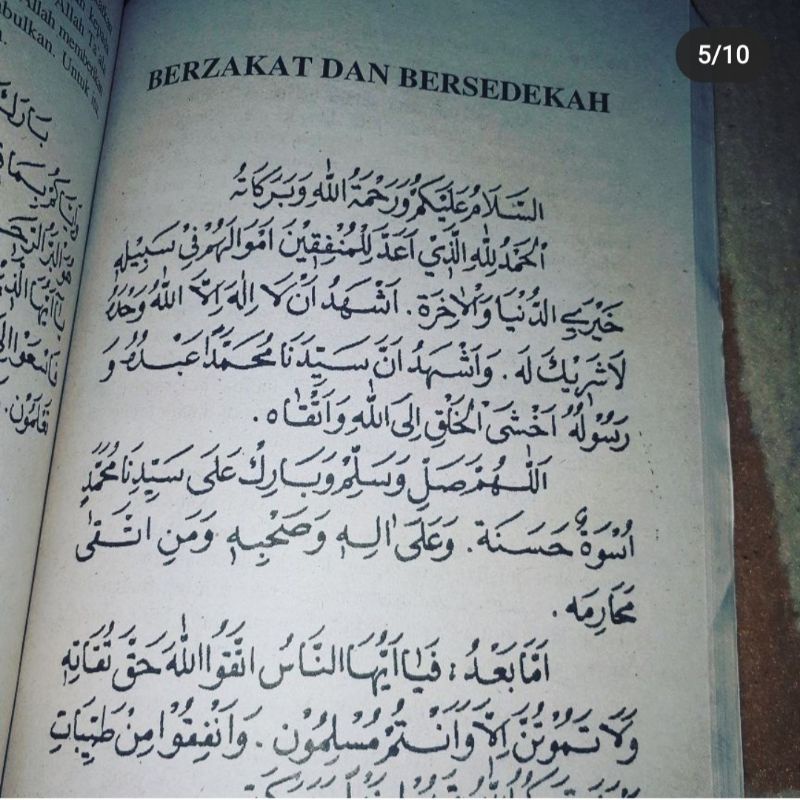 5/10
BERZAKAT DAN BERSEDEKAH
السَّلَامُ عَلَيْكُمْ وَرَحْمَةُ اللّٰهِ وَبَرَكَاتُهُ
اَلْحَمْدُ لِلّٰهِ الَّذِيْ اَعَدَّ لِلْمُنْفِقِيْنَ اَمْوَالَهُمْ فِيْ سَبِيْلِهِ
خَيْرَيِ الدُّنْيَا وَاْلاٰخِرَةِ. اَشْهَدُ اَنْ لَا اِلٰهَ اِلَّا اللّٰهُ وَحْدَهُ
لَاشَرِيْكَ لَهُ. وَاَشْهَدُ اَنَّ سَيِّدَنَا مُحَمَّدًا عَبْدُهُ وَ
رَسُوْلُهُ اَخْشَى الْخَلْقِ اِلَى اللّٰهِ وَاَتْقَاهُ.
اَللّٰهُمَّ صَلِّ وَسَلِّمْ وَبَارِكْ عَلَى سَيِّدِنَا مُحَمَّدٍ
اُسْوَةٌ حَسَنَةٌ. وَعَلَى اٰلِهِ وَصَحْبِهِ وَمَنِ اتَّقَى
مَحَارِمَهُ.
اَمَّا بَعْدُ: فَيَا اَيُّهَا النَّاسُ اتَّقُوا اللّٰهَ حَقَّ تُقَاتِهِ
وَلَا تَمُوْتُنَّ اِلَّا وَاَنْتُمْ مُسْلِمُوْنَ. وَاَنْفِقُوْا مِنْ طَيِّبَاتِ